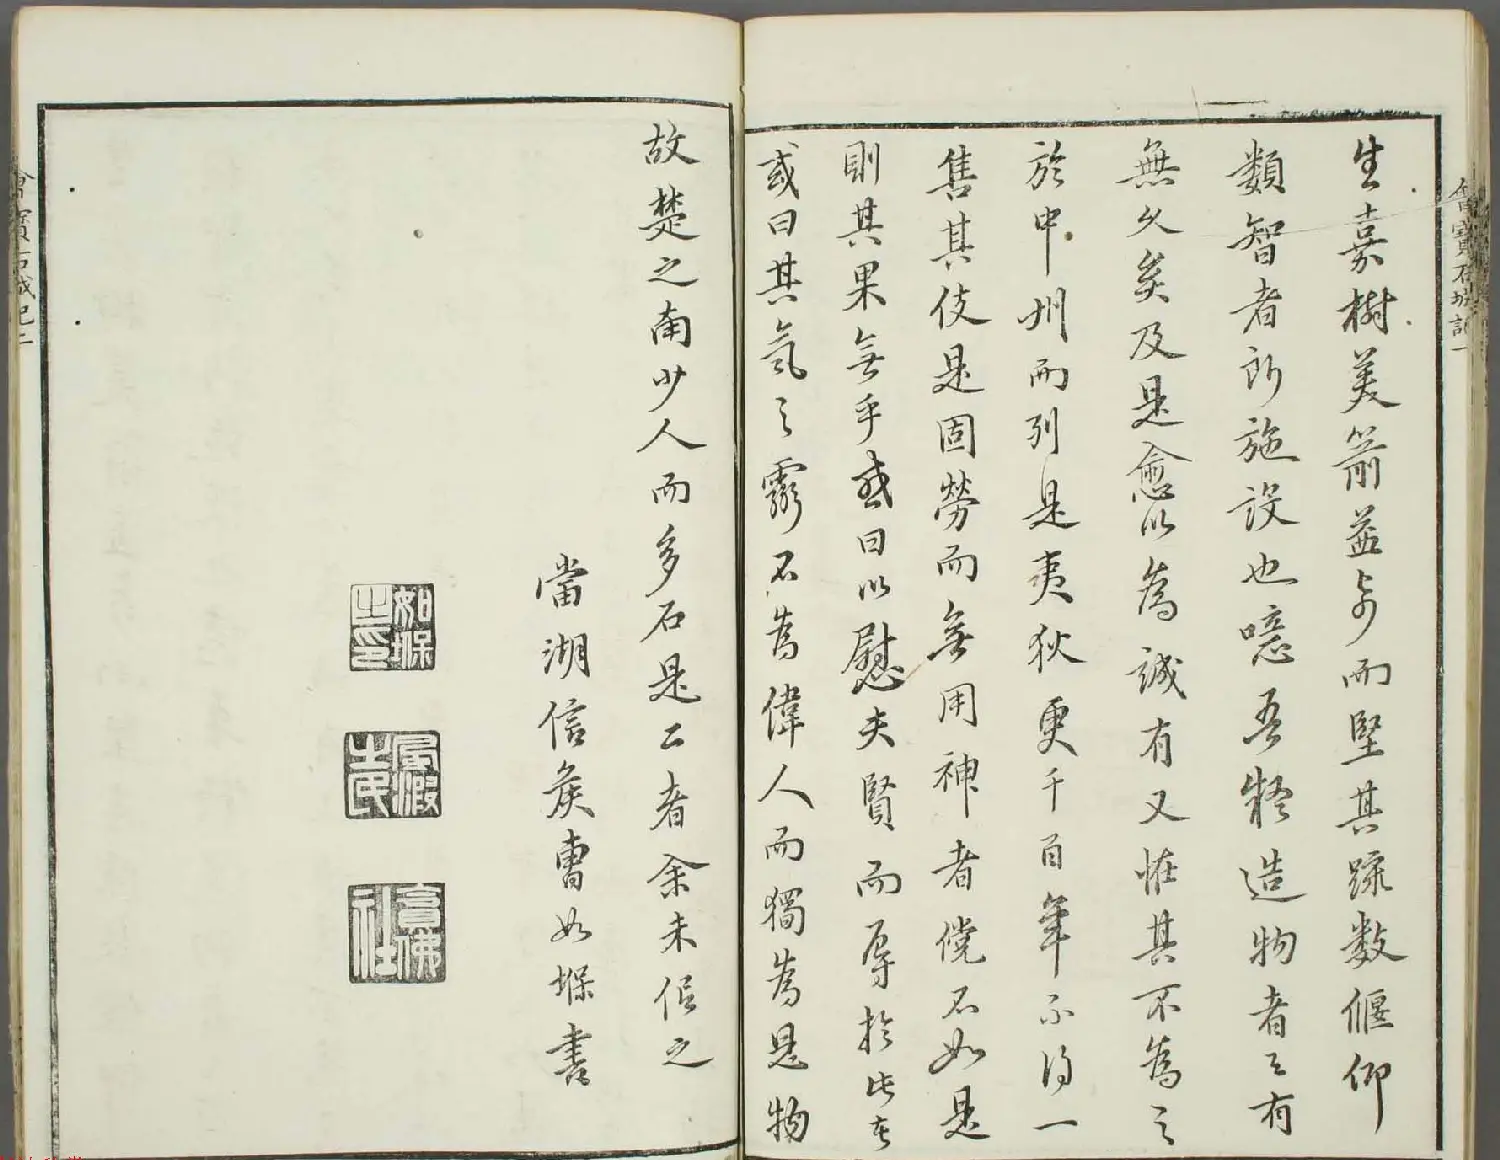 會寶石城記一
生嘉樹美箭益奇而堅其疏數偃仰
類智者所施設也噫吾疑造物者之有
無久矣及是愈以為誠有又怪其不為之
於中州而列是夷狄更千百年不得一
售其伎是固勞而無用神者儻不如是
則其果無乎或曰以慰夫賢而辱於此者
或曰其氣之靈不為偉人而獨為是物
故楚之南少人而多石是二者余未信之
當湖信矦曹如堢書
如堢之印
會寶石城記二